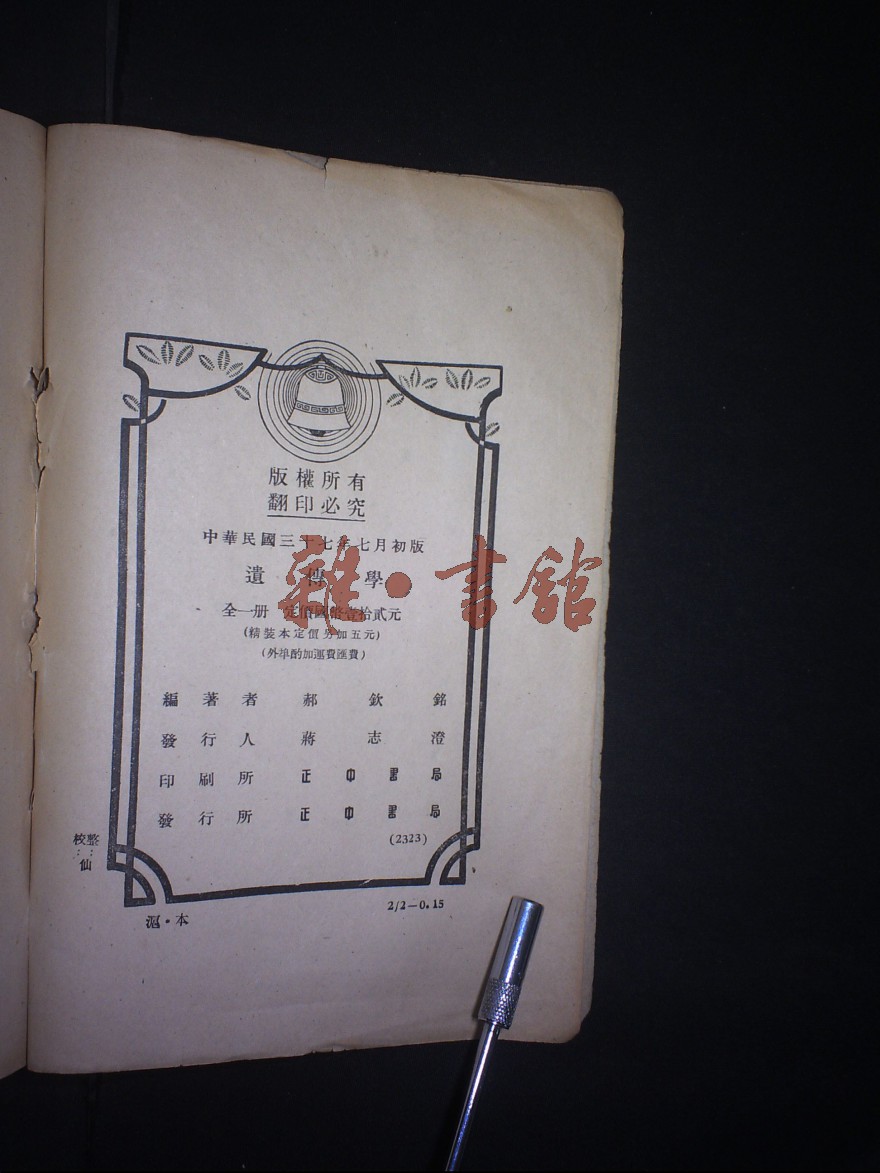 版權所有
翻印必究
中華民國三十七年七月初版
遺傳學
全一册 定價國幣壹拾貳元
(精裝本定價另加五元)
(外埠酌加運費匯費)
編著者 郝欽銘
發行人 蔣志澄
印刷所 正中書局
發行所 正中書局
(2323)
校整
：：
仙
滬·本
2/2—0.15
雜·書館